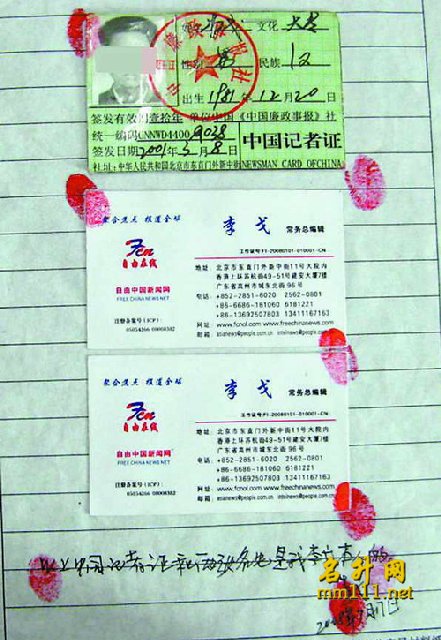 文化 大专
性别 男 民族 汉
出生 1981年12月20日
签发有效期壹拾年 单位 中国《中国廉政事报》社
统一编码CNNWD4400
签发日期2001年5月8日 中国记者证
社址:中华人民共和国北京市东直门外新中街 NEWSMAN CARD OFCHINA
聚合焦点 报道全球
李戈 常务总编辑
7cn
自由在线
自由中国新闻网
FREE CHINA NEWS NET
注册备案号(ICP):
05054266 00008382
工作证号:11-20080101-010001-CN
地址: 北京市东直门外新中街11号大院内
香港上环苏杭街49-51号建安大厦7楼
广东省高州市城东北路96号
电话: +852-2851-6020 2562-0801
+86-6686-181060 6181221
+86-13692507803 13411167163
网站: www.fcnol.com www.freechinanews.com
邮箱:
聚合焦点 报道全球
李戈 常务总编辑
7cn
自由在线
自由中国新闻网
FREE CHINA NEWS NET
注册备案号(ICP):
05054266 00008382
工作证号:11-20080101-010001-CN
地址: 北京市东直门外新中街11号大院内
香港上环苏杭街49-51号建安大厦7楼
广东省高州市城东北路96号
电话: +852-2851-6020 2562-0801
+86-6686-181060 6181221
+86-13692507803 13411167163
网站: www.fcnol.com www.freechinanews.com
邮箱:
以上中国记者证和两张名片是我李戈本人的
名升网
mm111.net